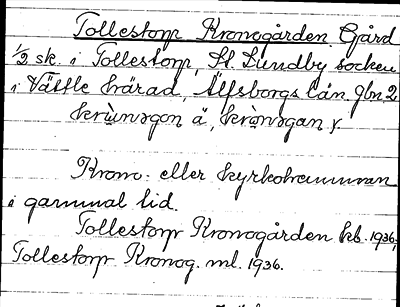 Tollestorp Kronogården. Gård
1/2 sk. i Tollestorp, St. Lundby socken
i Vättle härad, Älfsborgs län. Gbn 2
å, y.
Krono- eller kyrkohemman
i gammal tid.
Tollestorp Kronogården kb. 1936,
Tollestorp Kronog. ml. 1936.